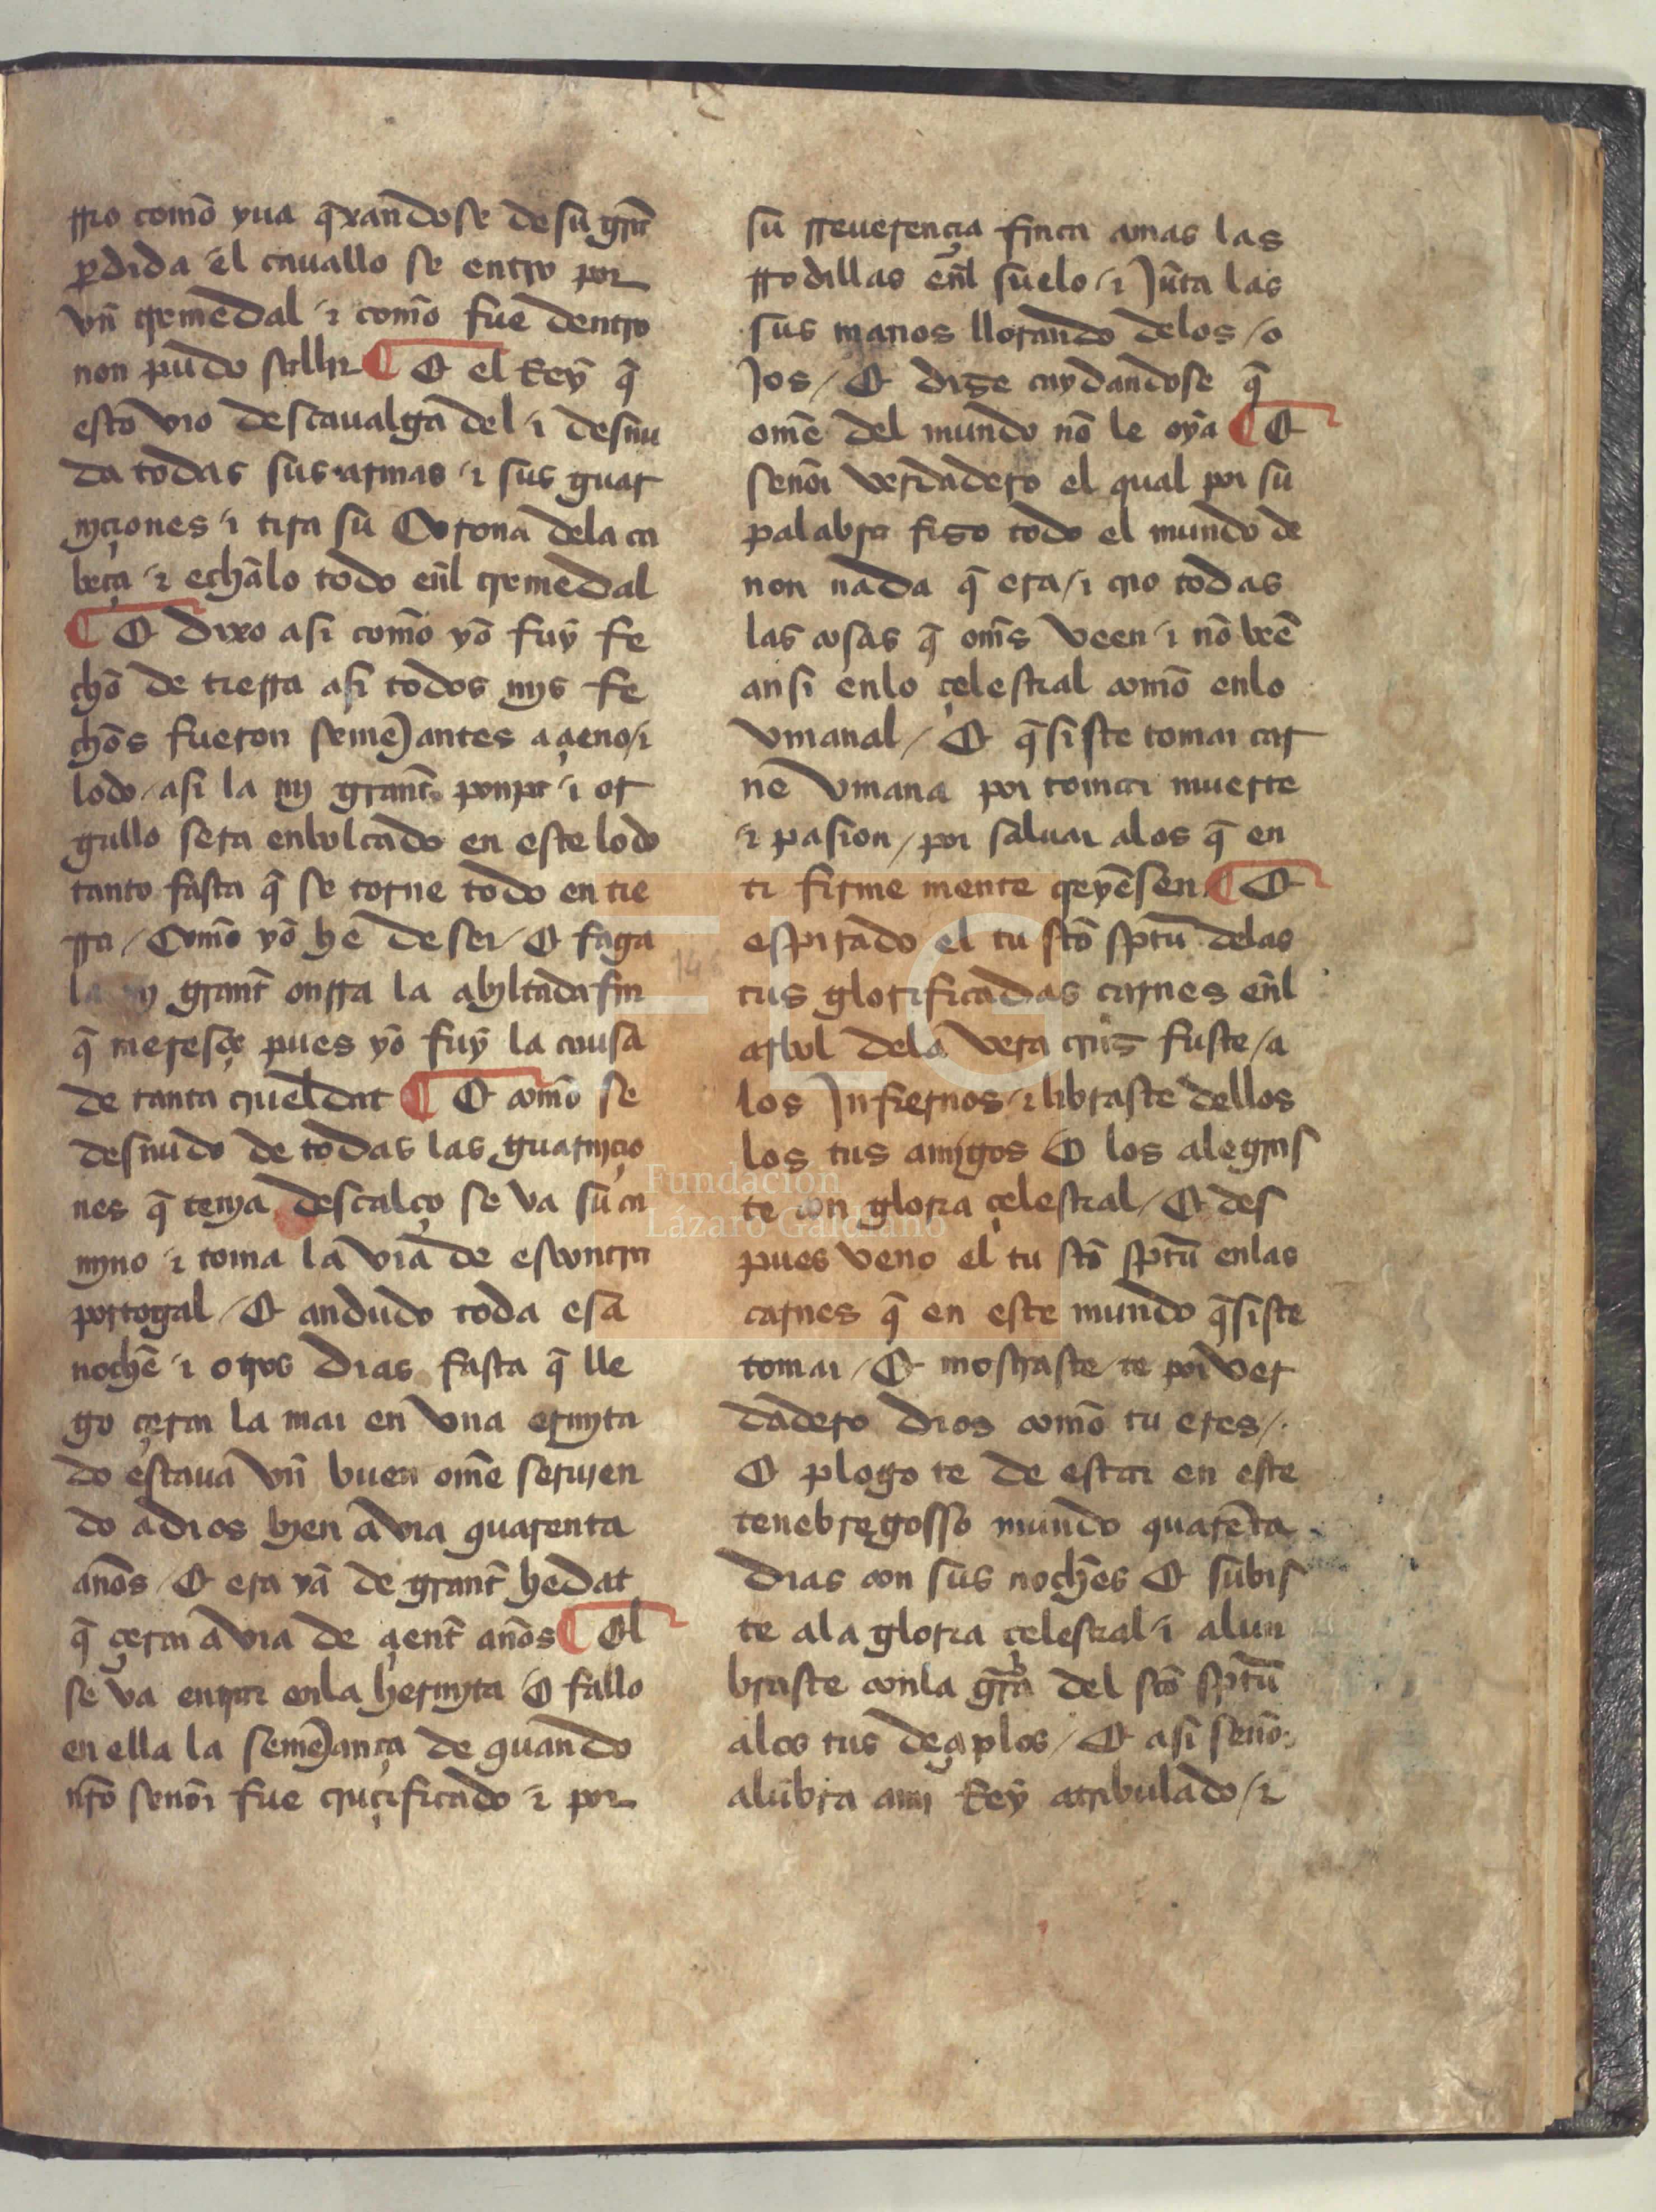 rro como yua q̄xandose de su grãt
pdida el cauallo se entro por
vn̄ tremedal ⁊ como fue dentro
non pudo sallir ¶ E el Rey q̄
esto vio descaualga del ⁊ desnu
da todas sus armas ⁊ sus guar
niçiones ⁊ tira su Corona dela ca
beça ⁊ echalo todo en̄l tremedal
¶ E dixo asi como yo fuy fe
cho de tierra asi todos mis fe
chos fueron semejantes a çeno ⁊
lodo / asi la mi grant̄ ponpa ⁊ or
gullo sera enbolcado en este lodo
tanto fasta q̄ se torne todo en tie
rra / Como yo he de ser / E faga
la my grant̄ onrra la abiltada fin
q̄ meresçe pues yo fuy la causa
de tanta crueldat ¶ E como se
desnudo de todas las guarniçio
nes q̄ tenia descalço se va su ca
mino ⁊ toma la via de escontra
portogal / E andudo toda esa
noche ⁊ otros dias fasta q̄ lle
go çerca la mar en vna ermita
do estaua vn̄ buen ome seruien
do a dios bien avia quarenta
años / E era ya de grant̄ hedat
q̄ çerca avia de çient̄ años ¶ El
se va entrar enla hermita E fallo
en ella la semejança de quando
nr̄o señor fue cruçificado ⁊ por
su rreuerençia finca amas las
rrodillas en̄l suelo ⁊ Junta las
sus manos llorando delos / o
Jos / E dize cuydandose q̄
ome del mundo nō le oya ¶ E
señor verdadero el qual por su
palabra fizo todo el mundo de
non nada q̄ era / ⁊ crio todas
las cosas q̄ om̄s veen ⁊ nō veē
ansi enlo çelestial como enlo
vmanal / E q̄siste tomar car
ne vmana por tomar muerte
⁊ pasion / por saluar alos q̄ en
ti firme mente creyēsen ¶ E
espirado el tu sc̄to sp̄tu delas
tus glorificadas carnes en̄l
arbol dela vera cruz fuste / a
los Infiernos ⁊ libraste dellos
los tus amigos E los alegras
te con gloria çelestial / E des
pues veno el tu sc̄to sp̄tu enlas
carnes q̄ en este mundo q̄siste
tomar / E mostraste / te por ver
dadero dios como tu eres /.
E plogo te de estar en este
tenebregosso mundo quarēta
dias con sus noches E subis
te ala gloria çelestial ⁊ alun
braste conla gr̄a del sc̄to sp̄tu
alos tus deçiplos / E asi señor
alūbra ami Rey atribulado / ⁊
146
FLG
Fundación
Lázaro Galdiano